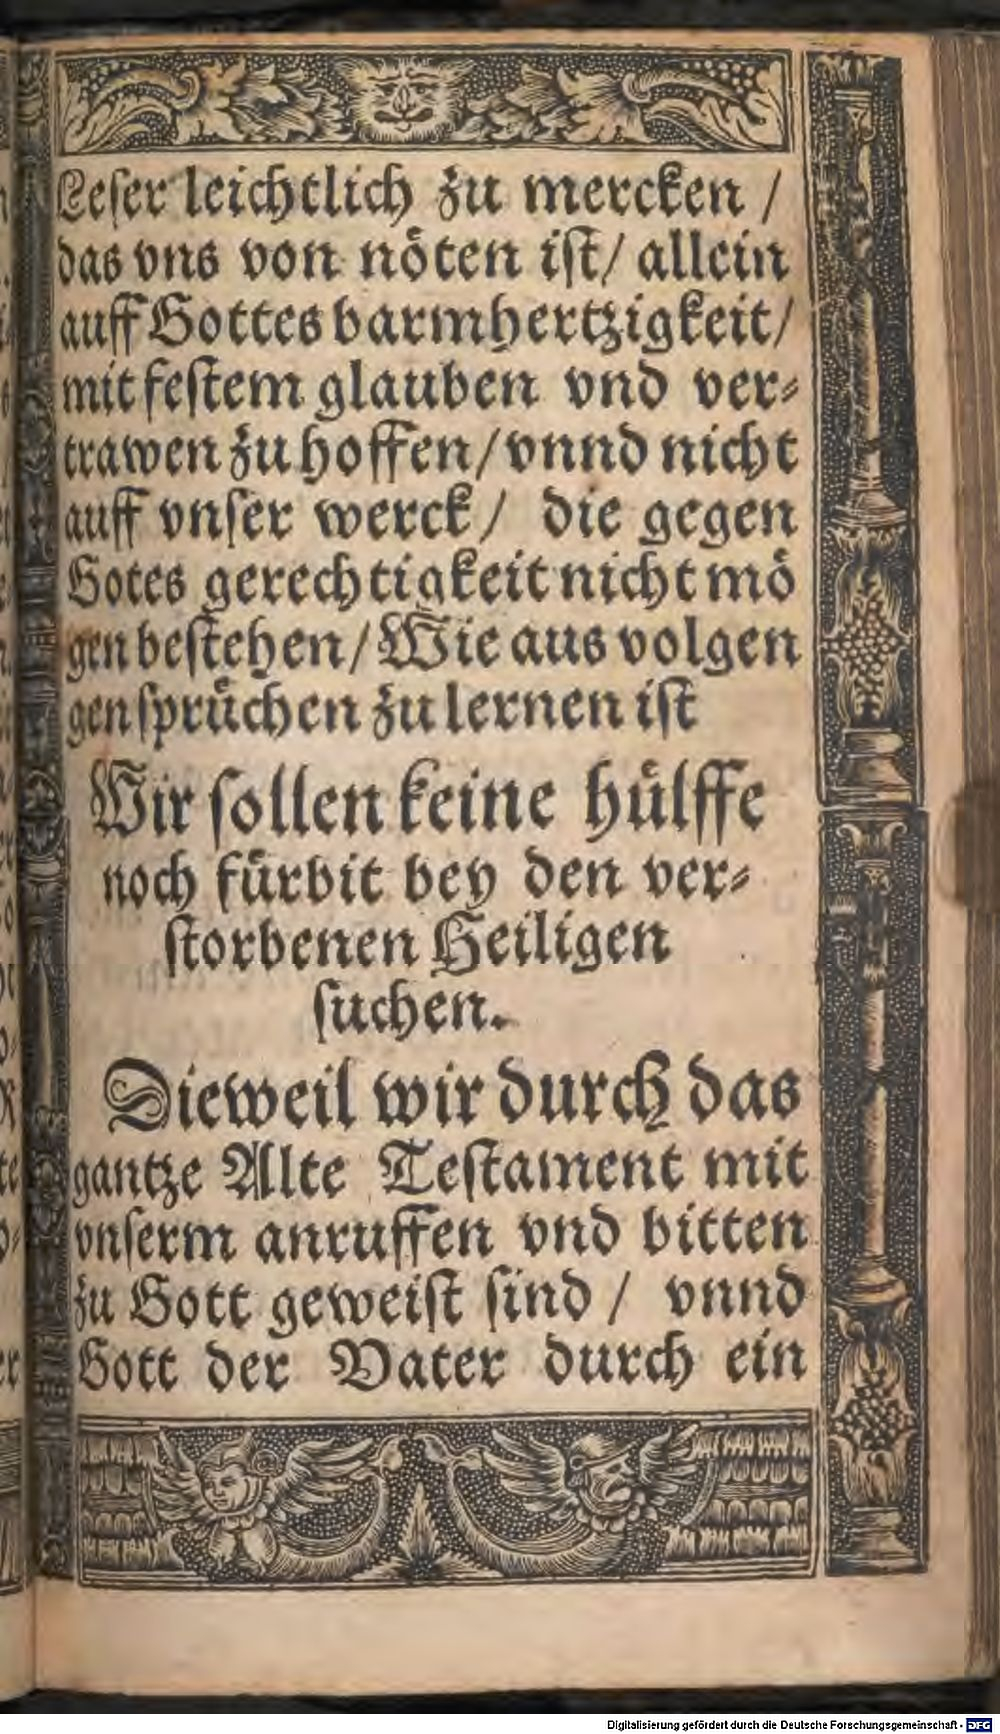 Leſer leichtlich zu mercken /
das vns von nöten iſt/ allein
auff Gottes barmhertzigkeit/
mit feſtem glauben vnd ver⸗
trawen zu hoffen / vnnd nicht
auff vnſer werck / die gegen
Gotes gerechtigkeit nicht mö
gen beſtehen / Wie aus volgen
gen ſprüchen zu lernen iſt
Wir ſollen keine hülffe
noch fürbit bey den ver⸗
ſtorbenen Heiligen
ſuchen.
Dieweil wir durch das
gantze Alte Teſtament mit
vnſerm anruffen vnd bitten
zu Gott geweiſt ſind / vnnd
Gott der Vater durch ein
Digitalisierung gefördert durch die Deutsche Forschungsgemeinschaft - DFG